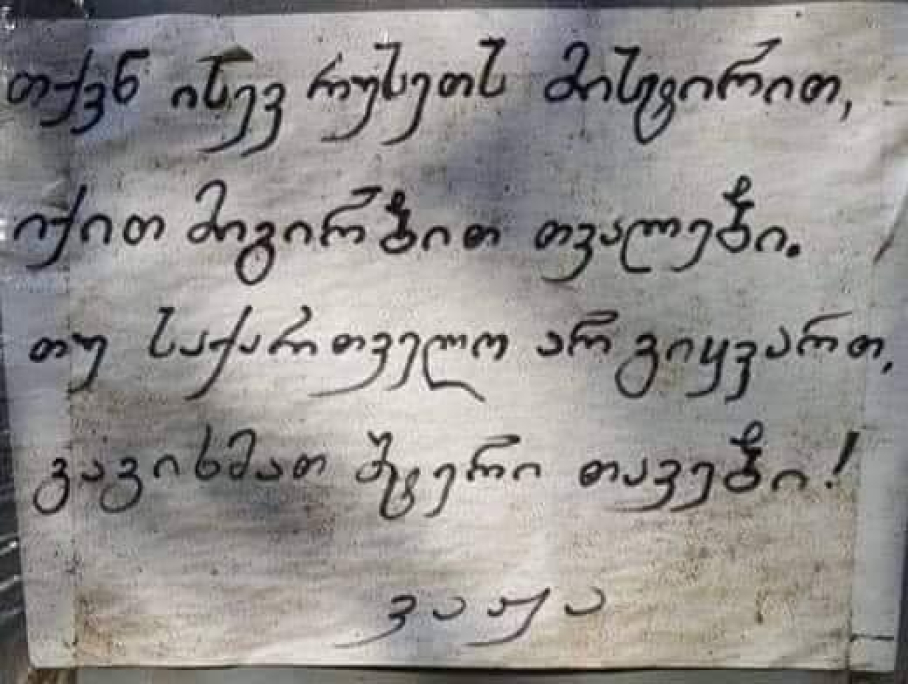 თქვნ ისევ რუსეთს მისტირით,
იქით მიგირბით თვალები.
თუ საქართველო არ გიყვართ,
გაგიხმათ მტერი თავები!
ვაჟა